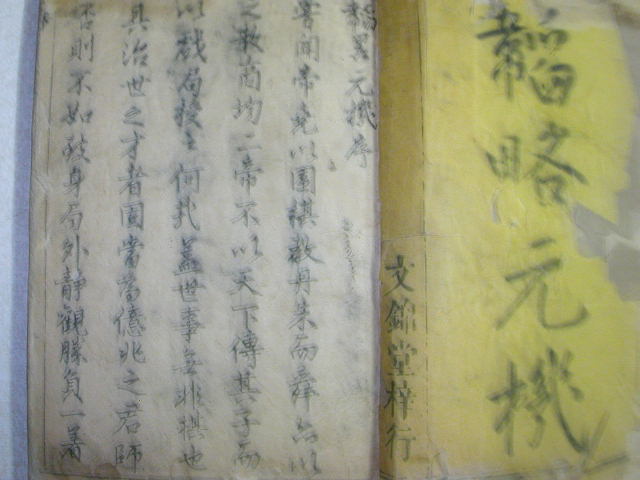 韜略元機
文錦堂梓行
韜畧元機序
嘗聞帝堯以圍棋教丹朱而舜亦以
之教商均二帝不以天下傳其子而
以戲局授之何哉蓋世事無非棋也
具治世之才者固當為億兆之君師
否則不如致身局外靜觀勝負一著